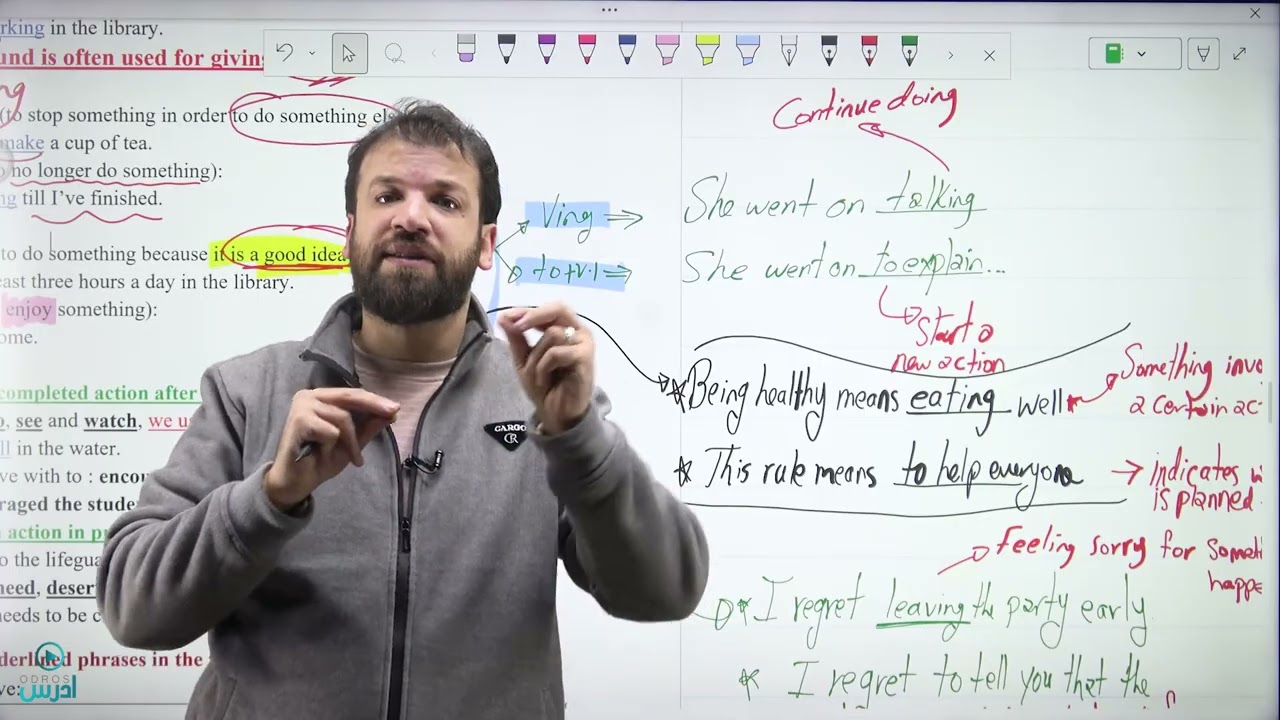 rking in the library.
und is often used for giving
ng
(to stop something in order to do something els
make a cup of tea.
no longer do something):
ng till I've finished.
to do something because it is a good idea
east three hours a day in the library.
enjoy something):
ome.
completed action after
see and watch, we us
ll in the water.
ve with to : encou
raged the stude
action in pr
o the lifegua
need, deser
needs to be c
derlined phrases in the
ve:
ODROS
ادرس
CARGO
CR
Ving
to+v.1
Continue doing
She went on talking
She went on to explain...
Start a
new action
Being healthy means eating well
Something invo
a certain ac
This rule means to help everyone
indicates w
is planned
Feeling sorry for someth
happe
I regret leaving the party early
I regret to tell you that the